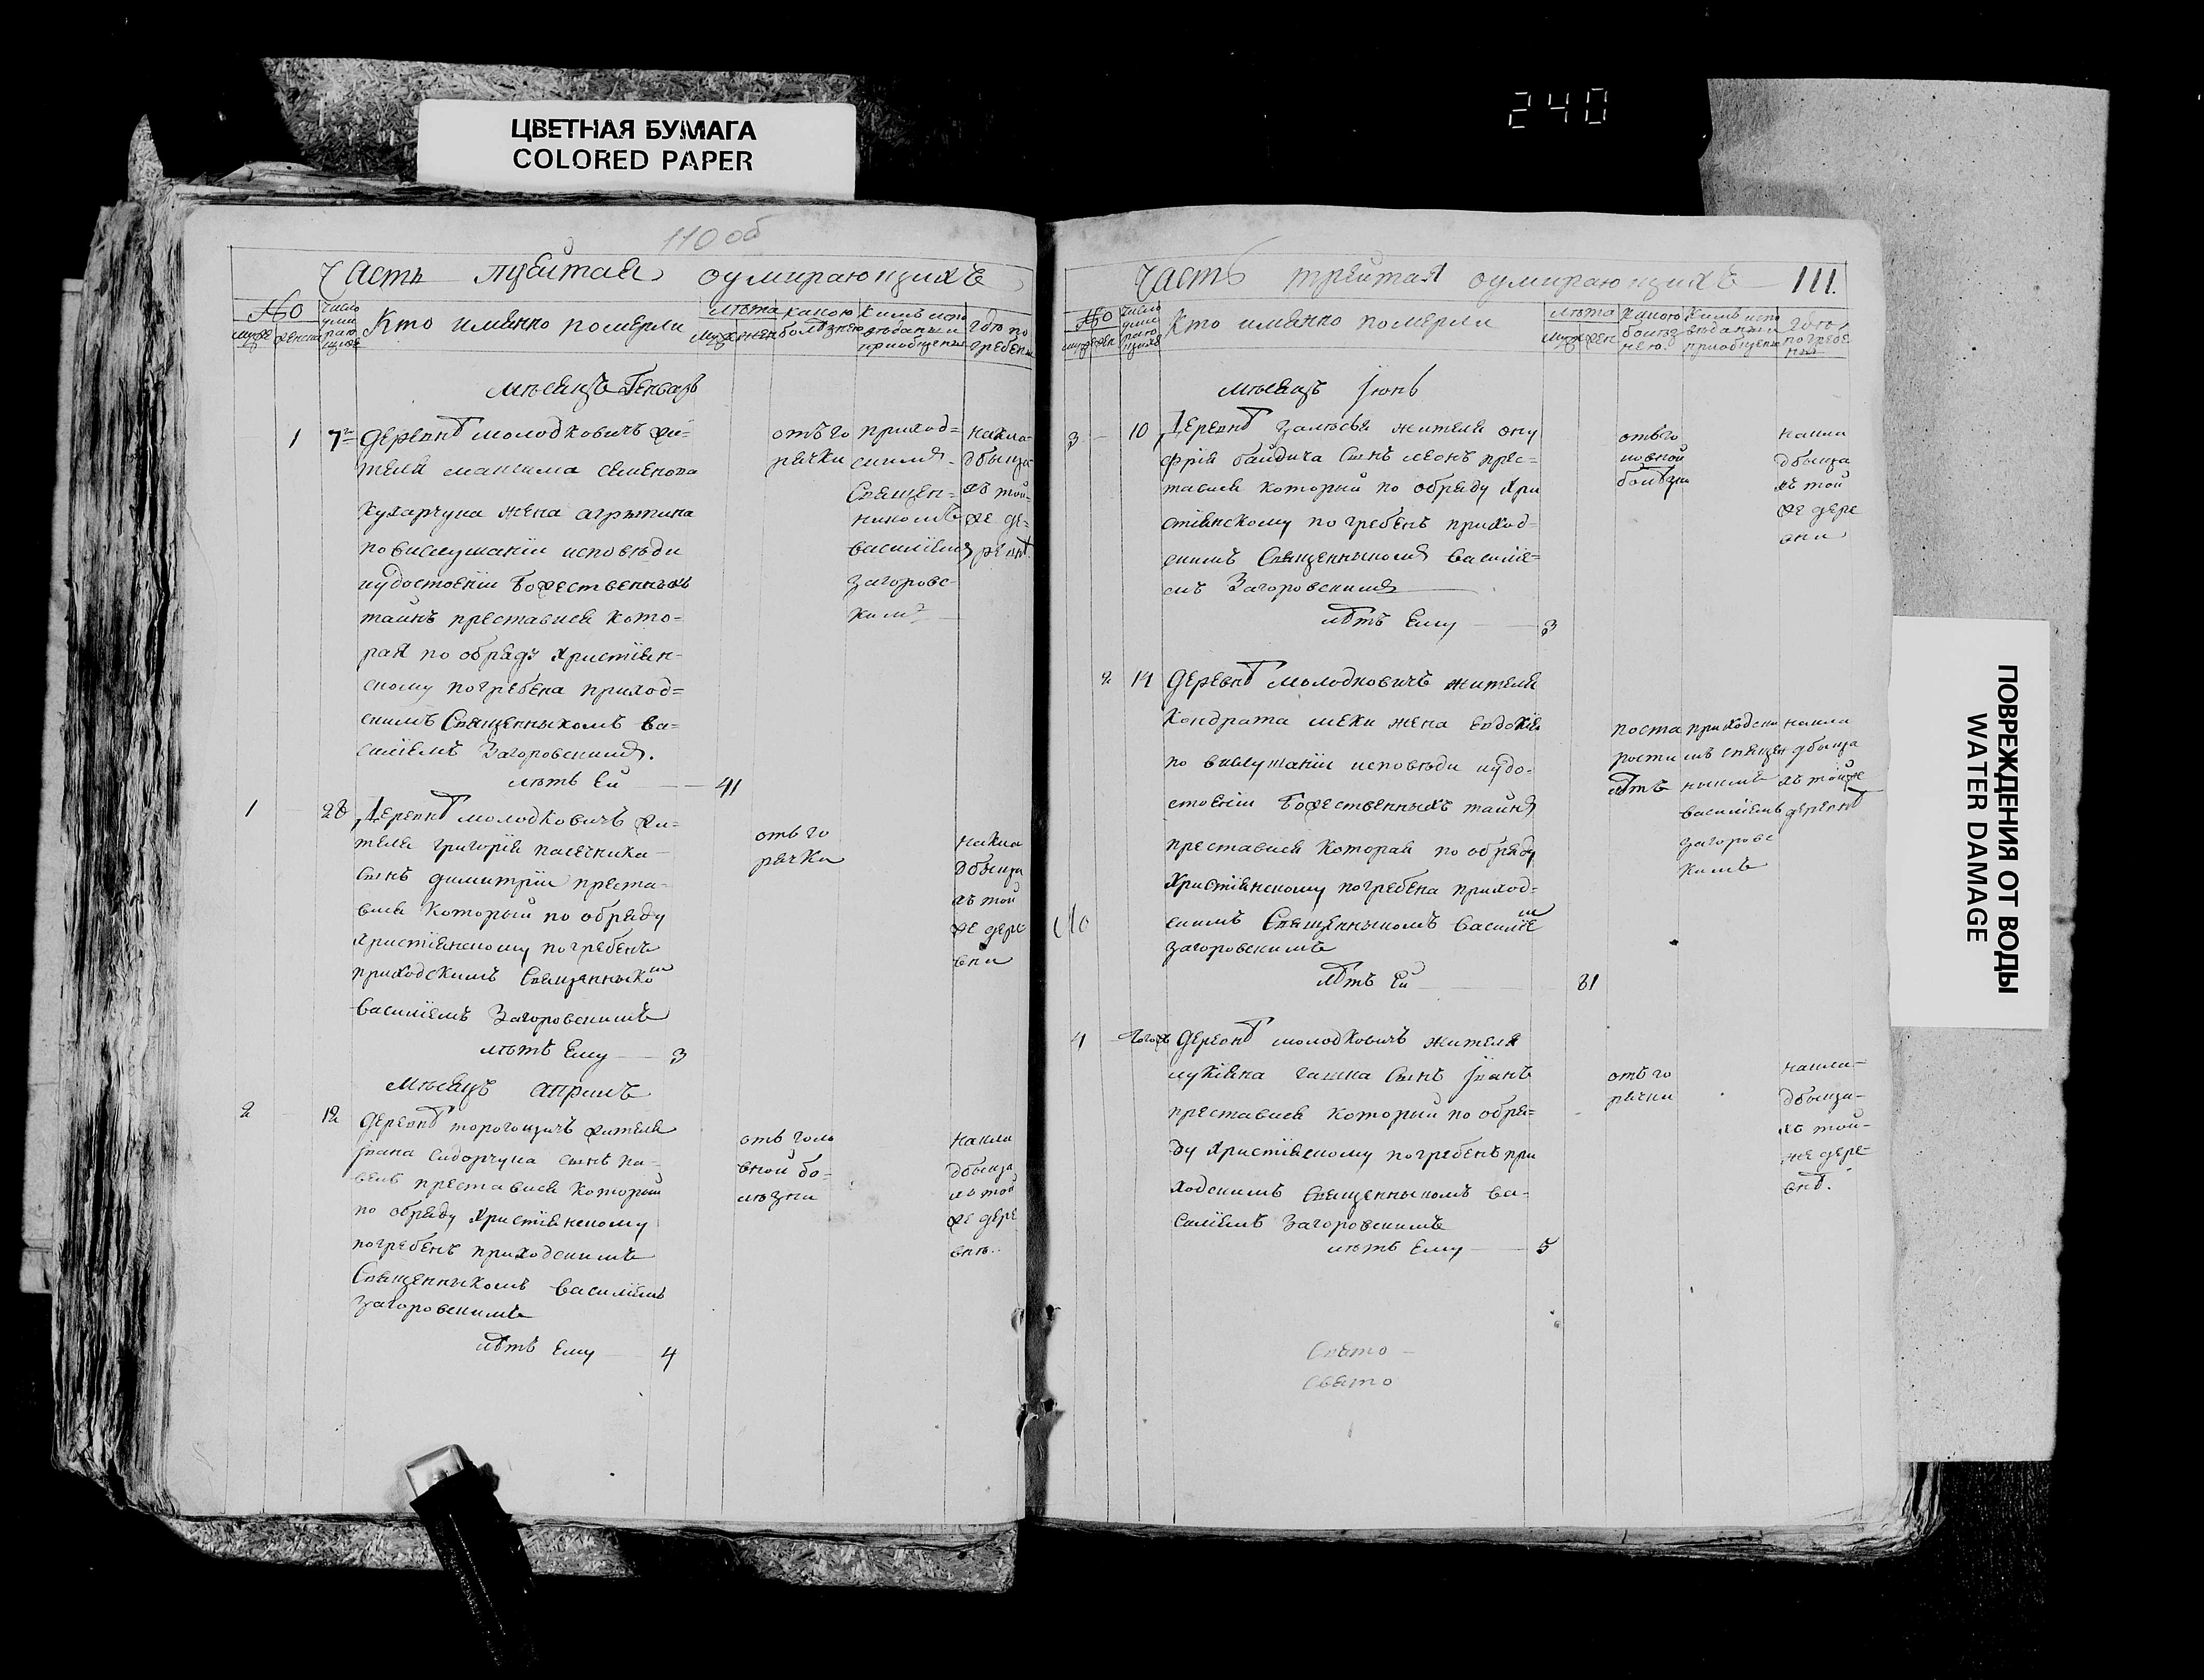 ЦВЕТНАЯ БУМАГА
COLORED PAPER
240
110 об
Часть третая оумирающихъ
№
Число умирающихъ
Кто имянно померли
лѣта
какою болѣзнею
Кимъ исповѣданы и приобщены
Гдѣ погребены
Мѣсяцъ Генварь
1 7
деревнѣ молодковичъ жи-
теля максима семенова
Кухарчука жена агрыпина
по выслушаніи исповѣди
и удостоеніи Божественныхъ
таинъ преставися Кото-
рая по обряду христіян-
скому погребена приход-
скимъ Священныкомъ Ва-
силіемъ Загоровскимъ.
лѣтъ Ей 41
отъ го
рячки
приход-
скимъ
Священ-
никомъ
василіемъ
Загоровс-
кимъ
на кла-
дбыща
хъ той-
же де-
ревнѣ
1 28
Деревнѣ молодковичъ жи-
теля григорія пасечника
сынъ димитрій преста-
вися Который по обряду
христіянскому погребенъ
приходскимъ Священныком
Василіемъ Загоровскимъ
лѣтъ Ему 3
отъ го
рячки
на кла
дбыща
хъ той
же дере
вни
Мѣсяцъ Априль
2 12
деревнѣ торогощичъ жителя
Іоана Сидорчука сынъ Па-
велъ преставися Который
по обряду христіянскому
погребенъ приходскимъ
Священныкомъ Василіемъ
Загоровскимъ
лѣтъ Ему 4
отъ голо
вной бо-
лѣзни
на кла
дбыща
хъ той
же дере
внѣ.
Часть третая оумирающихъ 111.
№
Число умирающихъ
Кто имянно померли
лѣта
Какою болѣзнею.
Кимъ исповѣданы и приобщены
Гдѣ погребены
Мѣсяцъ Іюнь
3 10
Деревнѣ залѣсья жителя ону
фрія байдича Сынъ леонъ прес-
тавися Который по обряду Хри
стіянскому погребенъ приход-
скимъ Священныкомъ Василіе-
мъ Загоровскимъ
лѣтъ Ему 3
отъ го
ловной
болѣзни
на кла
дбыща
хъ той
же дере
вни
2 14
деревнѣ молодковичъ жителя
Кондрата жена Евдокія
по выслушаніи исповѣди и удо-
стоеніи Божественныхъ таинъ
преставися Которая по обряду
Христіянскому погребена приход-
скимъ Священныкомъ Василіем
Загоровскимъ
лѣтъ Ей 81
по ста
рости
лѣтъ
приходски
мъ священ
ныкомъ
василіемъ
Загоровс
кимъ
на кла
дбыща
хъ той же
деревнѣ
4 Тогожъ
деревнѣ молодковичъ жителя
лукіяна сынъ Іоанъ
преставися Который по обря-
ду Христіянскому погребенъ при
ходскимъ Священныкомъ Ва-
силіемъ Загоровскимъ
лѣтъ Ему 5
отъ го
рячки
на кла-
дбыща-
хъ той-
же дере-
внѣ.
Свято
Свято
ПОВРЕЖДЕНИЯ ОТ ВОДЫ
WATER DAMAGE